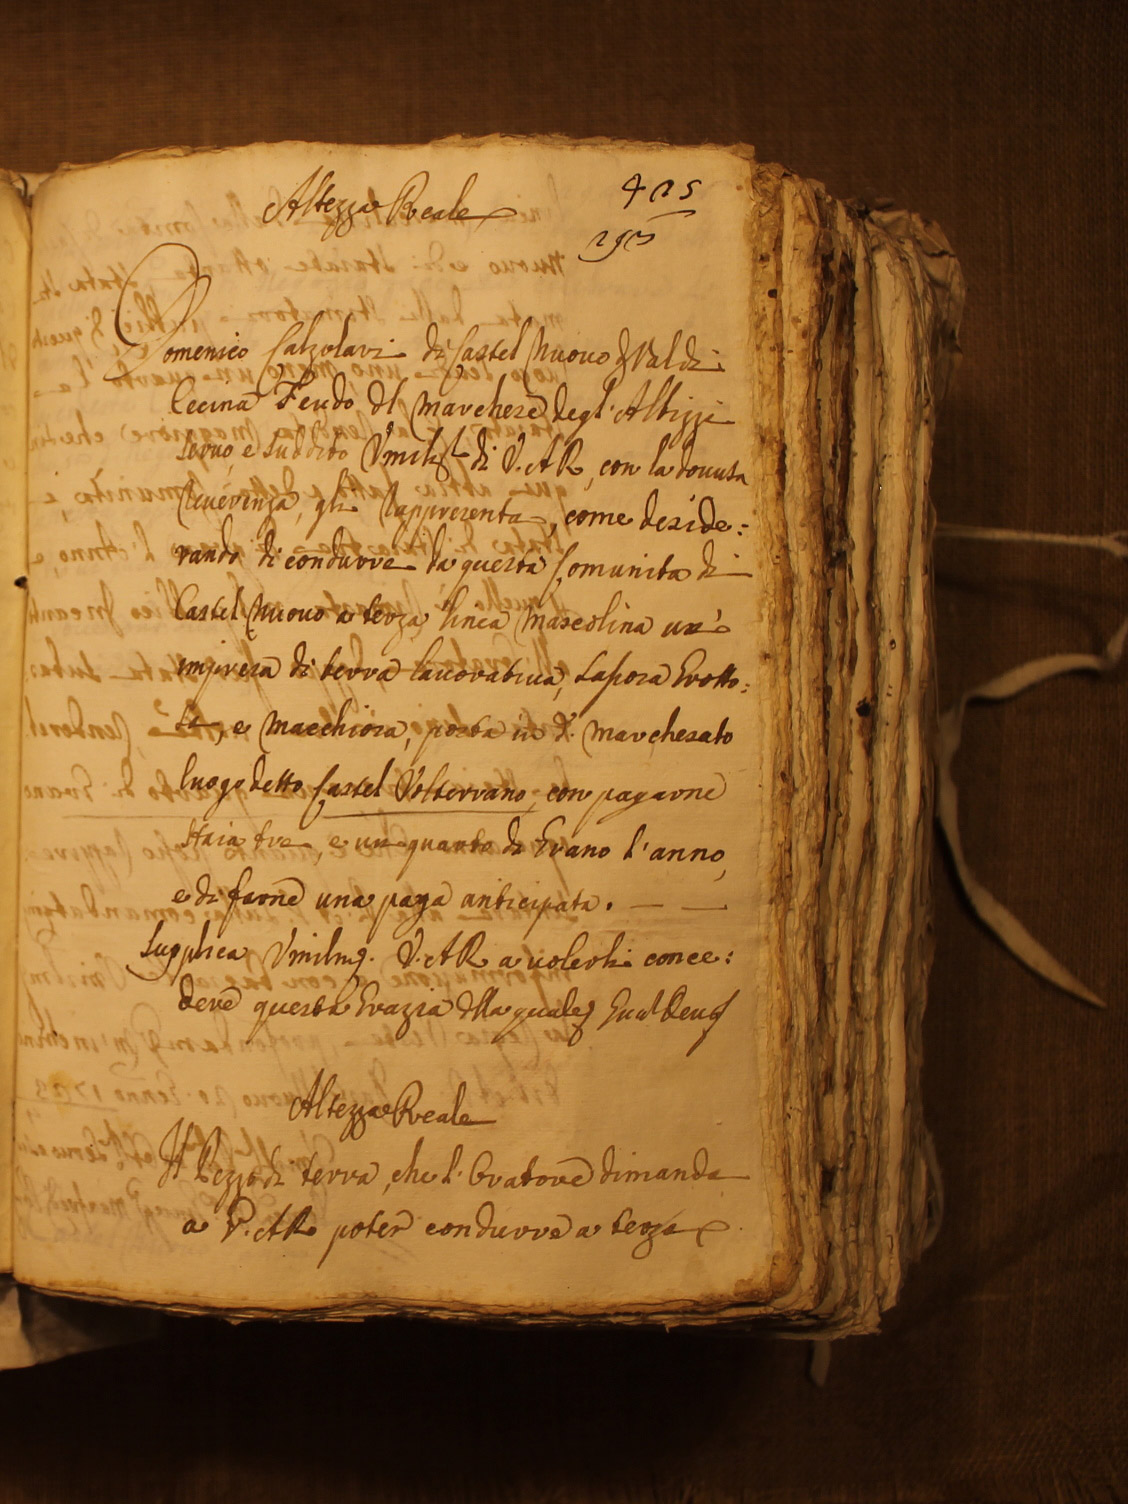 Altezza Reale
425
293
Domenico Calzolari di Castel Nuovo di Valdi
Cecina Feudo del Marchese degl'Albizzi
servo, e suddito Vmiliss. di V. A R, con la dovuta
Reverenza, gli Rappresenta, come deside:
rando di condurre da questa Comunita di
Castel Nuovo a terza linea Mascolina un'
impresa di terra lavorativa, Saposa Grotto:
sa, e Macchiosa, posta in d.o Marchesato
luogo detto Castel Volterrano, con pagarne
Staia tre e un quarto di Grano l'anno,
e di farne una paga anticipata.
Supplica Vmilmq. V. A R a volerli conce:
dere questa Grazia della quale
Altezza Reale
Il Pezzo di terra, che l'Oratore dimanda
a V. A R poter condurre a terza